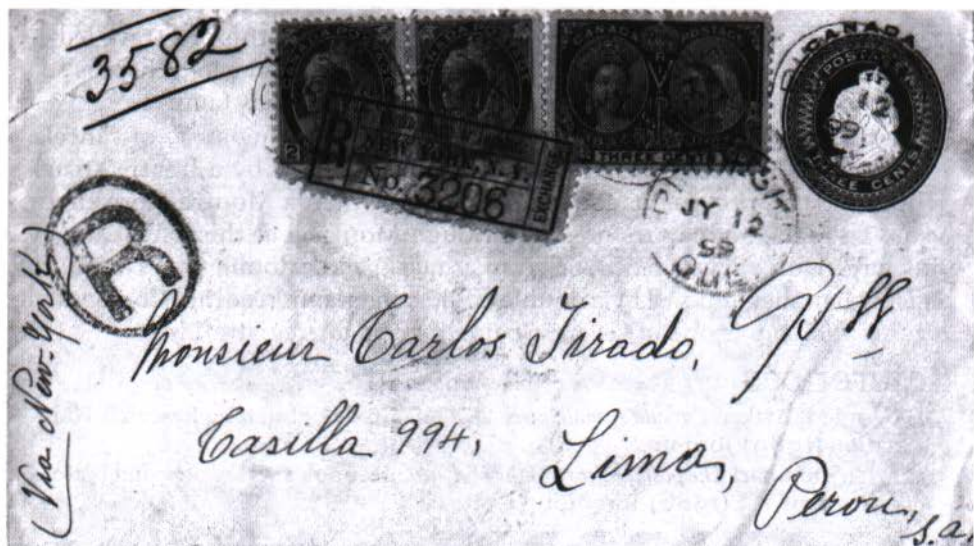 3582
CANADA POSTAGE
THREE CENTS
CANADA
POSTAGE
THREE CENTS
R
NEW YORK, N.Y.
No. 3206
EXCHANGE
JY 12
99
QUE
R
(Via New-York)
Monsieur Carlos Tirado,
Casilla 994,
Lima,
Perou,
S.a.